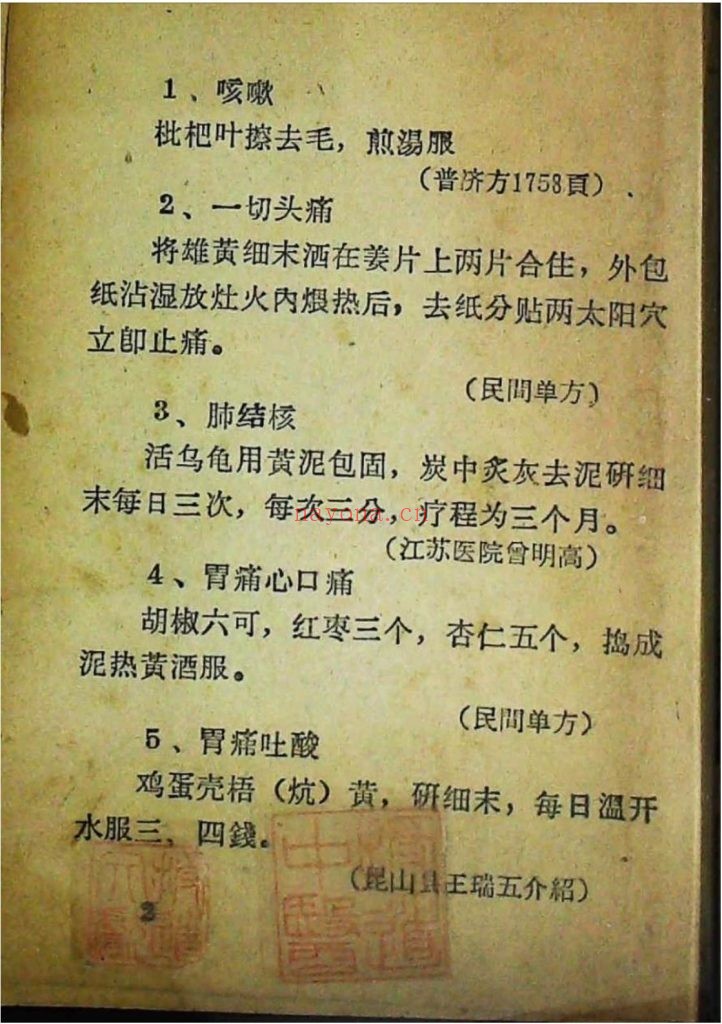 1、咳嗽
枇杷叶擦去毛，煎湯服
（普济方1758頁）．
2、一切头痛
将雄黄细末洒在姜片上两片合住，外包
纸沾湿放灶火內煨热后，去纸分贴两太阳穴
立卽止痛。
（民間单方）
3、肺结核
活乌龟用黄泥包固，炭中炙灰去泥硏细
末每日三次，每次三分，疗程为三个月。
nayona.cn
（江苏医院曾明高）
4、胃痛心口痛
胡椒六可，红枣三个，杏仁五个，捣成
泥热黄酒服。
（民間单方）
5、胃痛吐酸
鸡蛋壳梧（炕）黄，硏细末，每日溫开
水服三、四錢。
（昆山县王瑞五介紹）
2